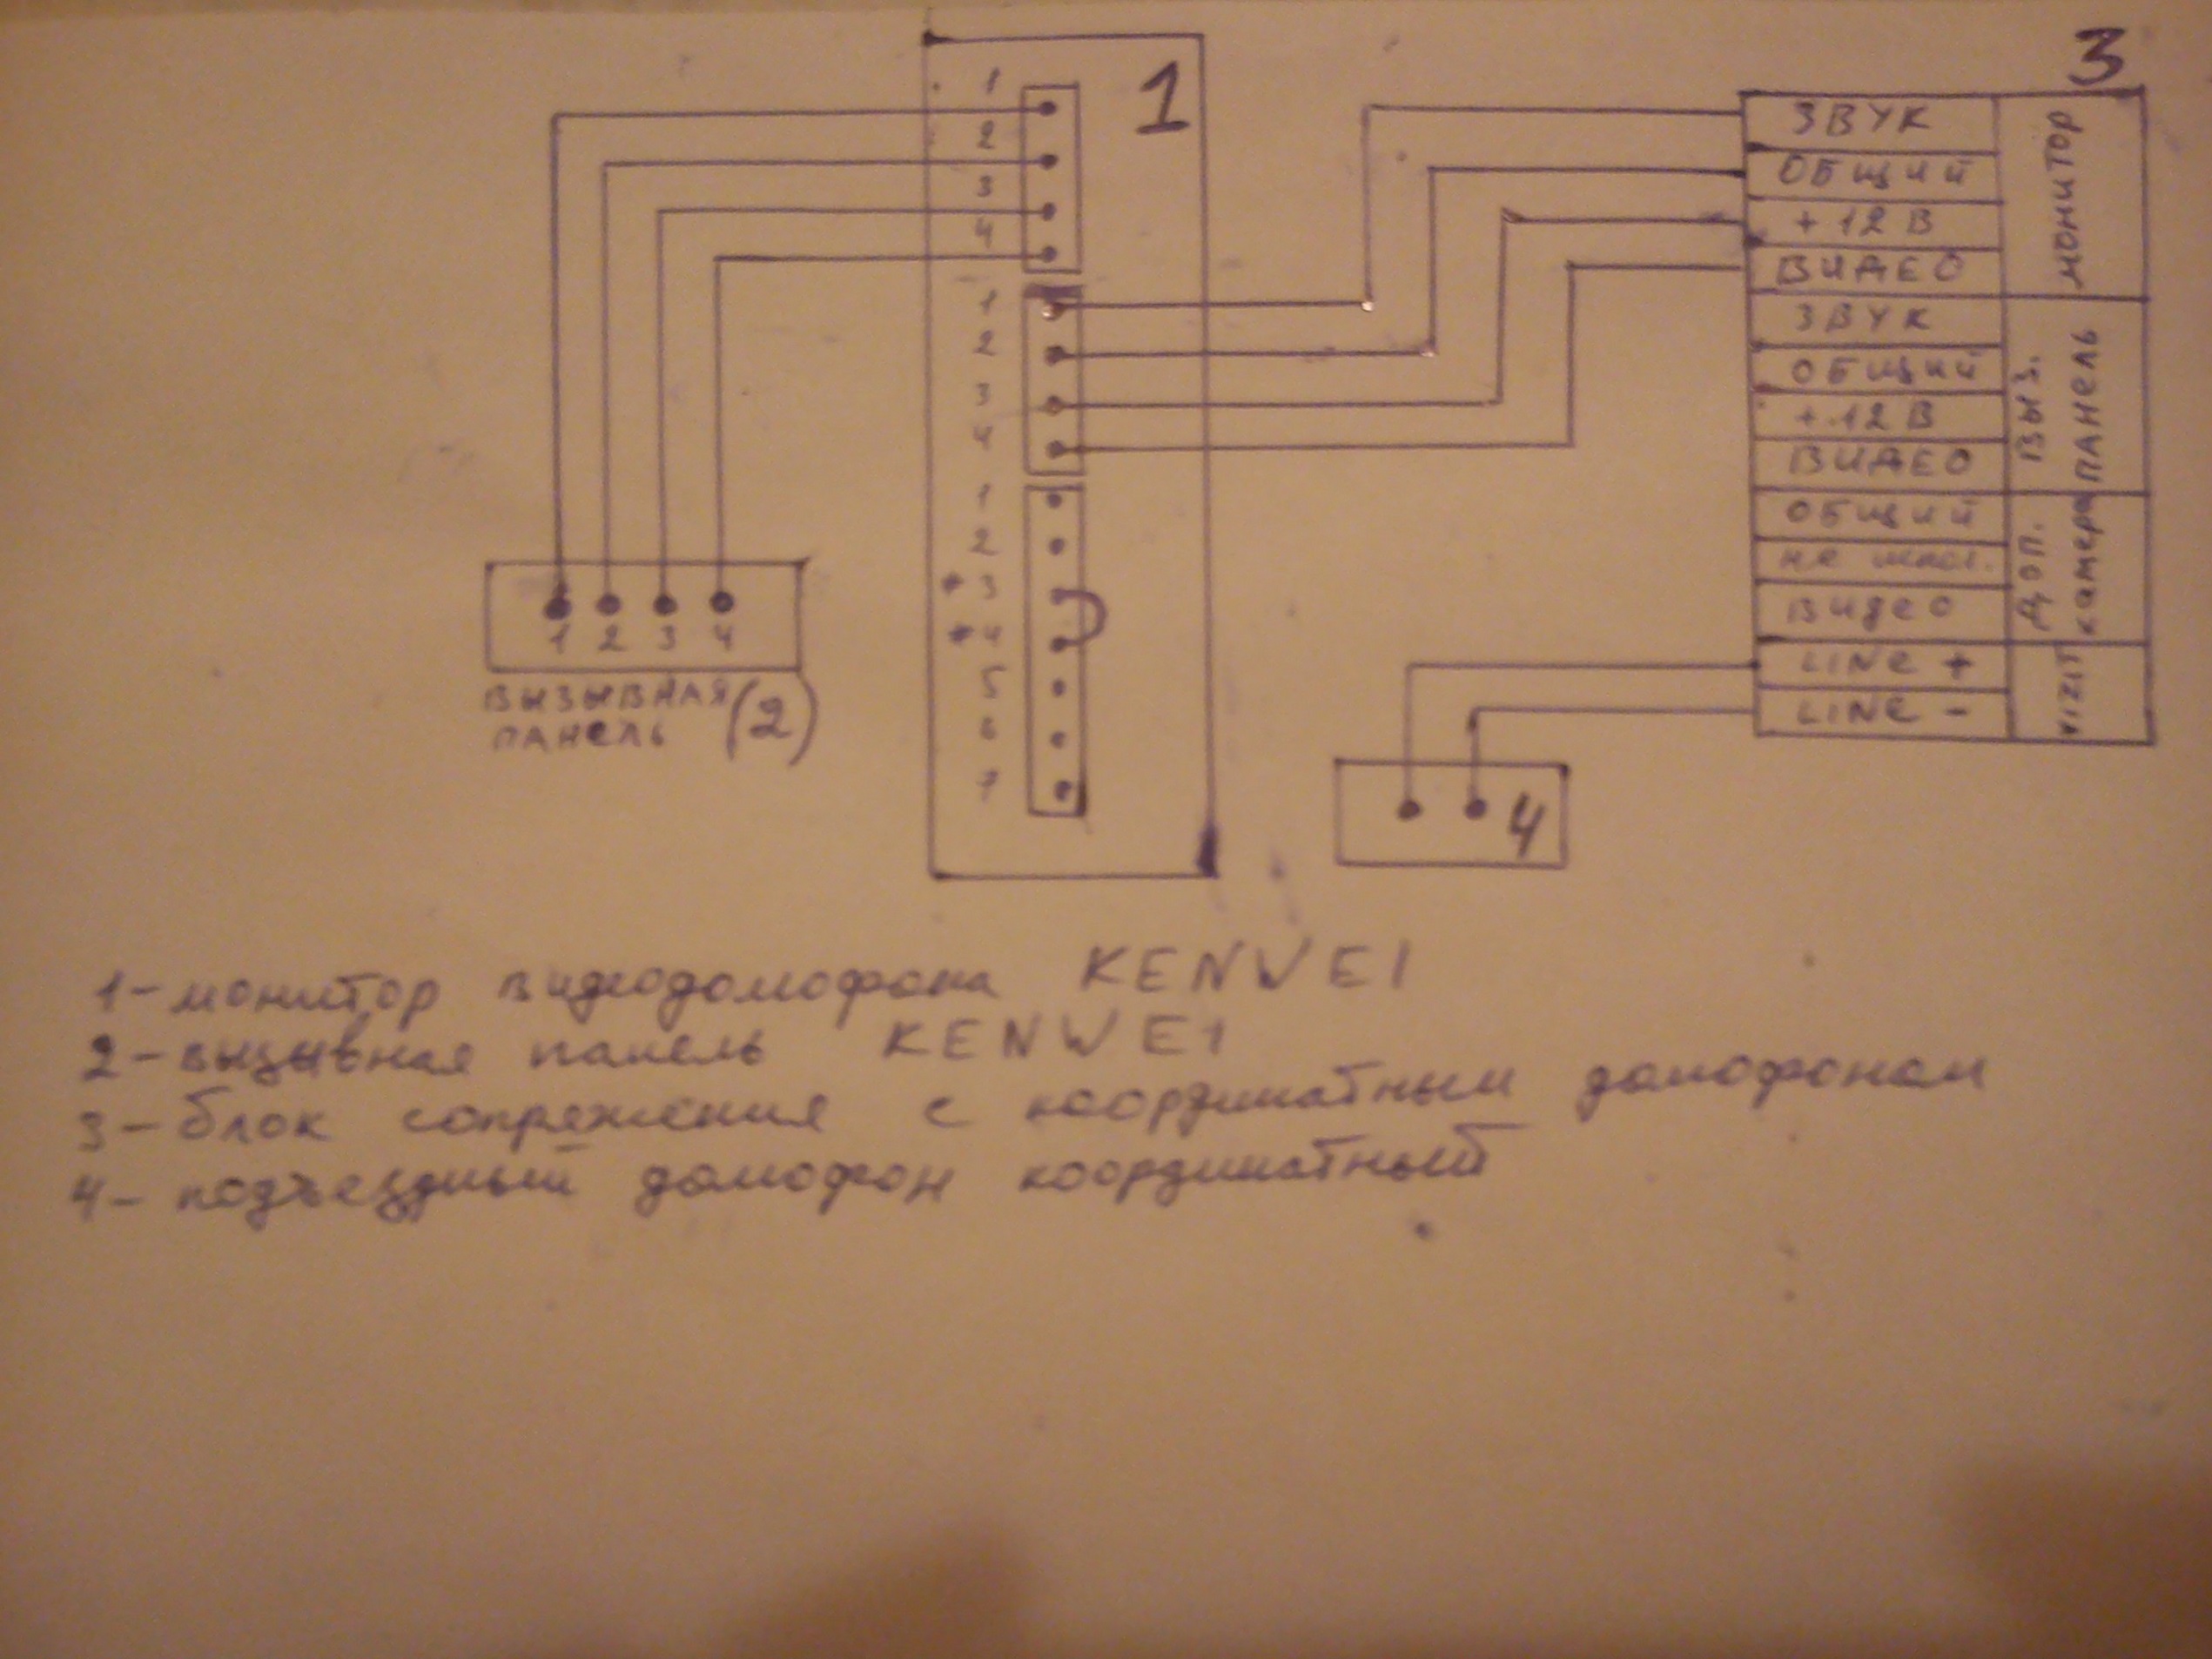 1
3
1
2
3
4
1
2
3
4
1
2
* 3
* 4
5
6
7
ЗВУК
ОБЩИЙ
+ 12 В
ВИДЕО
МОНИТОР
ЗВУК
ОБЩИЙ
+ 12 В
ВИДЕО
ВЫЗ.
ПАНЕЛЬ
ОБЩИЙ
не испол.
Видео
ДОП.
камера
LINE +
LINE -
VIZIT
1 2 3 4
ВЫЗЫВНАЯ
ПАНЕЛЬ (2)
4
1 - монитор видеодомофона KENWEI
2 - вызывная панель KENWEI
3 - блок сопряжения с координатным домофоном
4 - подъездный домофон координатный